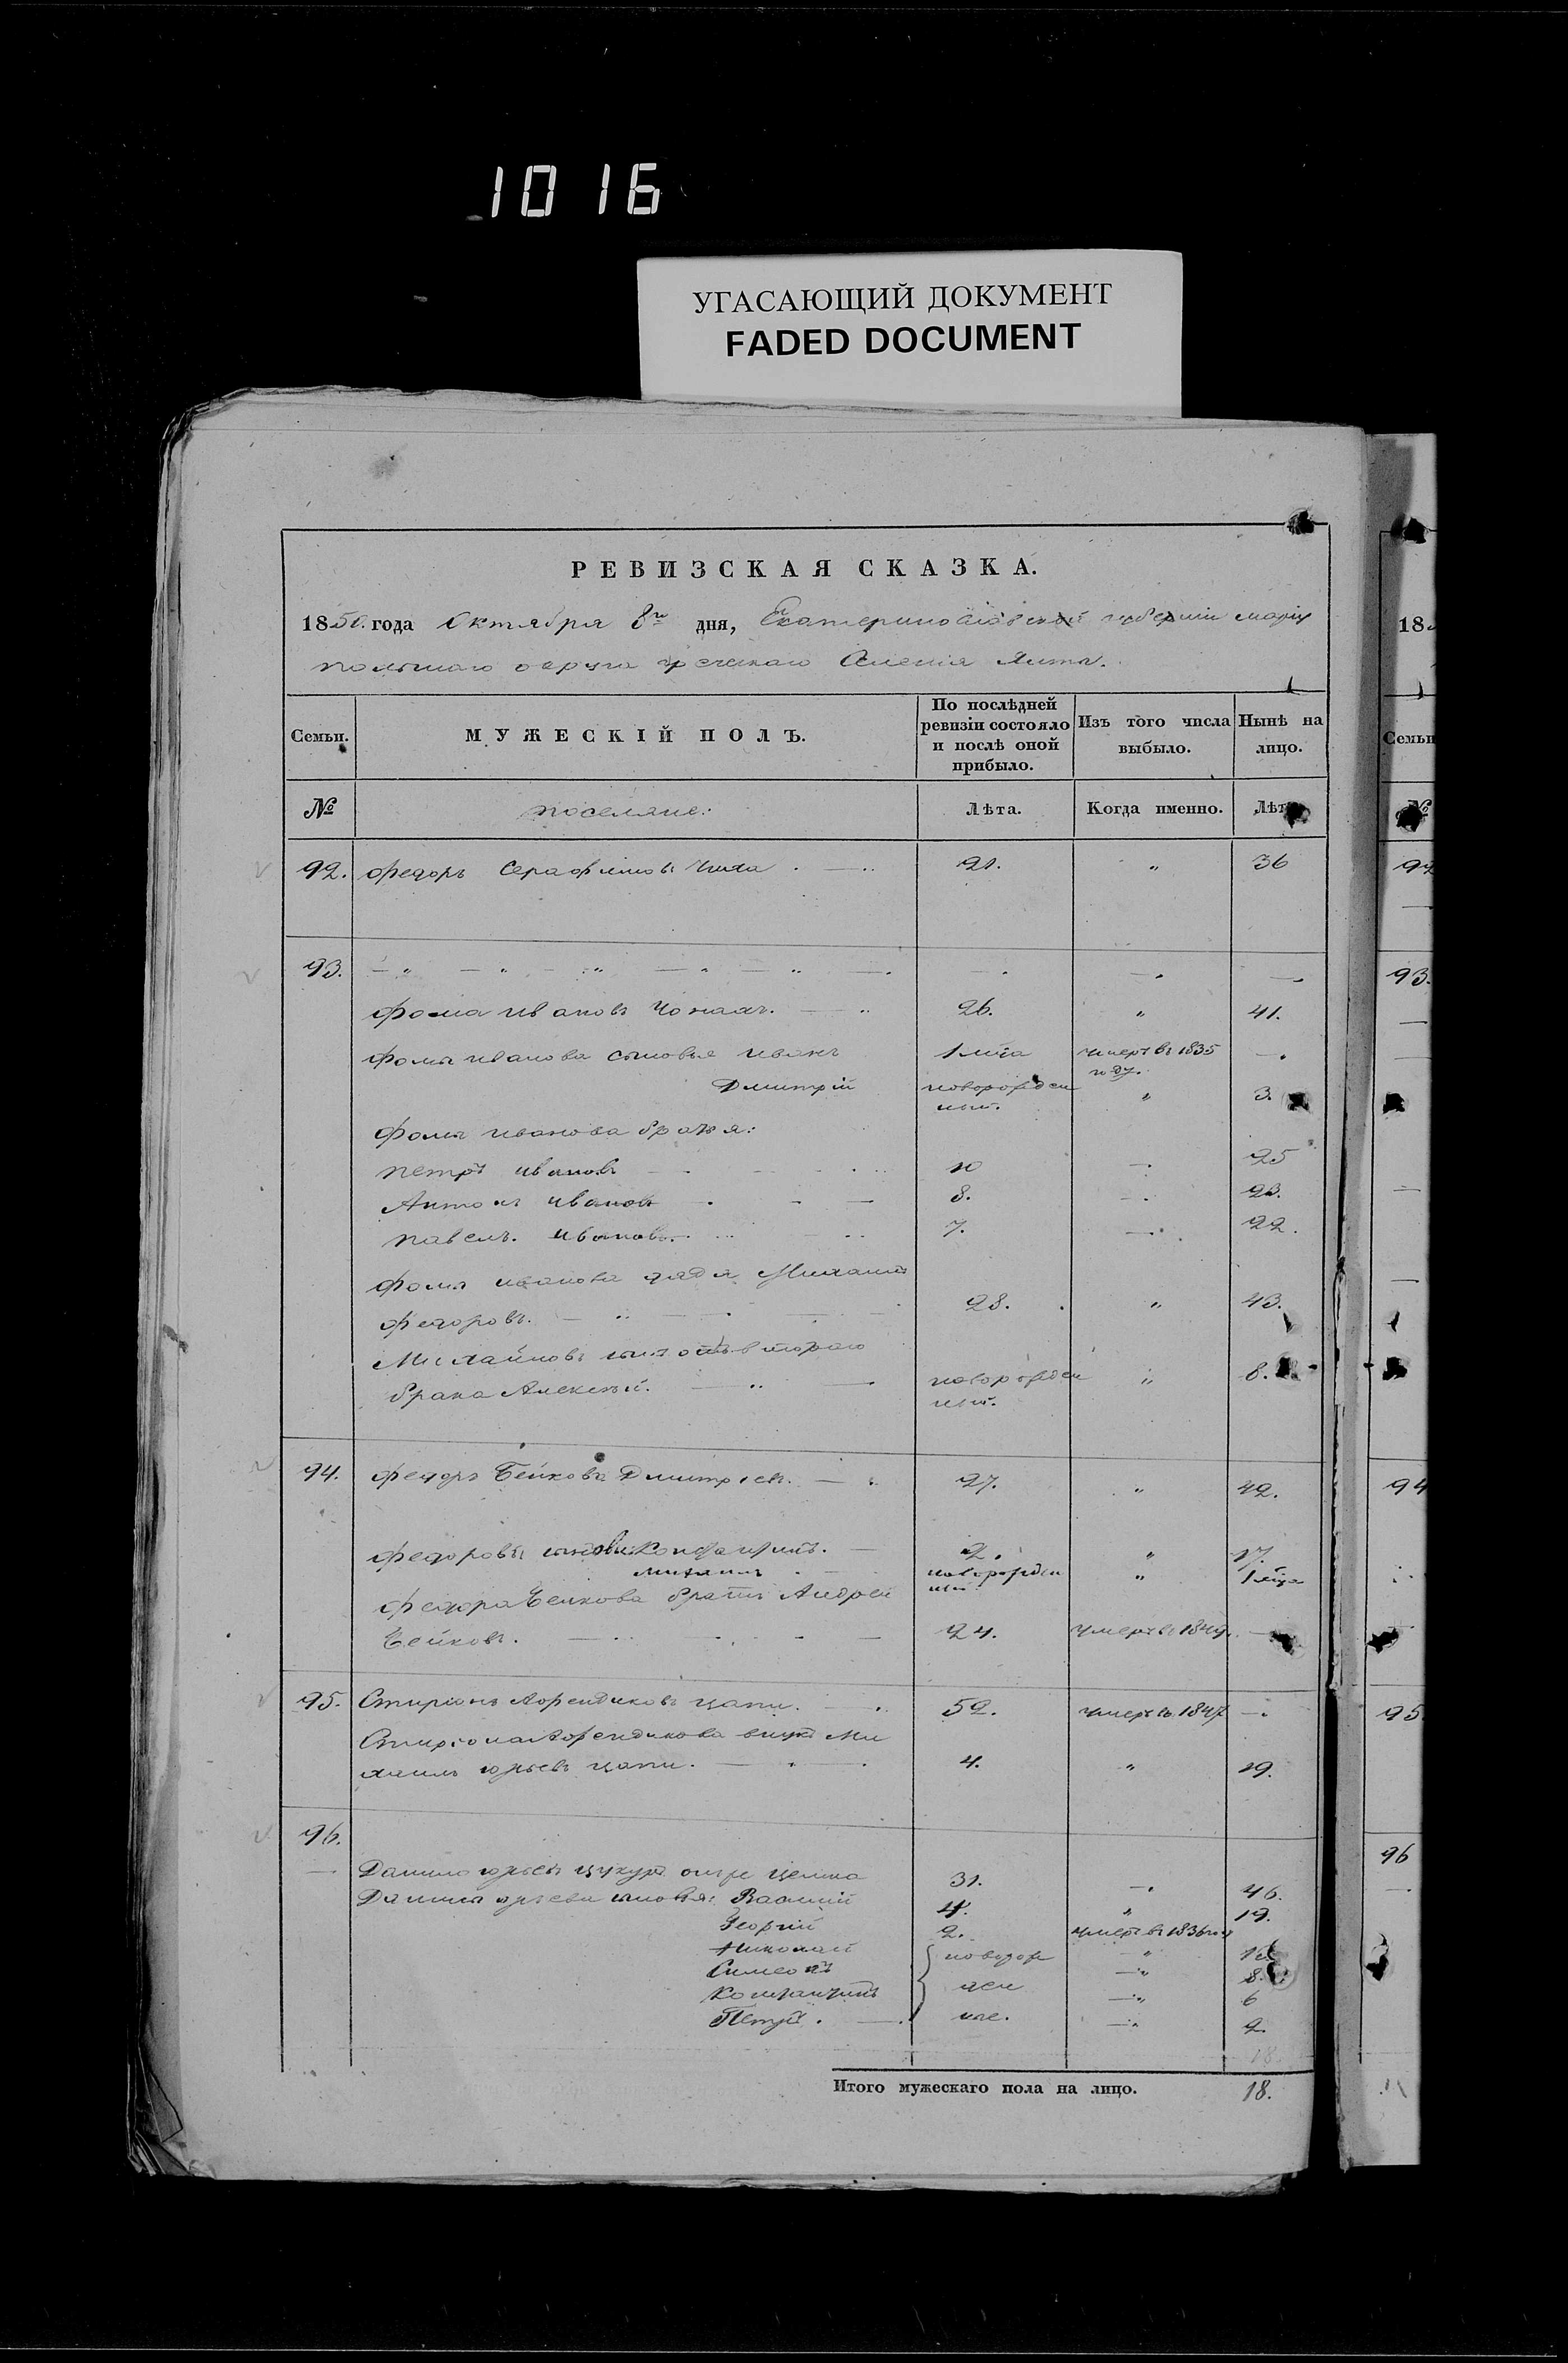 1016
УГАСАЮЩИЙ ДОКУМЕНТ
FADED DOCUMENT
РЕВИЗСКАЯ СКАЗКА.
1850. года Октября 8го дня, Екатеринославской губерніи Маріу
польскаго округа греческаго Селенія Ялта.
Семьи. МУЖЕСКІЙ ПОЛЪ. По послѣдней ревизіи состояло и послѣ оной прибыло. Изъ того числа выбыло. Нынѣ на лицо.
№ поселяне: Лѣта. Когда именно. Лѣта
92. Федоръ Серафимовъ 21. " 36
93.
Фома Ивановъ 26. " 41.
Фомы Иванова сыновья Иванъ 1 умеръ въ 1835 году.
Дмитрій новорожден ный. " 3.
Фомы Иванова братья:
Петръ Ивановъ 10 25
Антонъ Ивановъ 8. 23.
Павелъ Ивановъ 7. 22.
Фомы Иванова дядя Михаилъ
Федоровъ. 28. " 43.
Михайловъ сынъ отъ втораго
брака Алексѣй. новорожден ный. " 8.
94. Федоръ Бейковъ Дмитріевъ. 27. " 42.
Федоровы сыновья Константинъ. 2. " 17.
Михаилъ новорожден ный " 1
Федора Бейкова братъ Андрей
Бейковъ. 24. умеръ въ 1849.
95. Спиріонъ цапи. 52. умеръ въ 1847
Спиріона внукъ Ми
хаилъ Юрьевъ цапи. 4. " 19.
96.
Данило Юрьевъ 31. 46.
Данила Юрьева сыновья: Василій 4. " 19.
Георгій 2. умеръ въ 1836
Николай новорож "
Симеонъ " 8.
Константинъ ден " 6
Петръ. ные. " 2.
18.
Итого мужескаго пола на лицо. 18.
18
Семьи
№
92
93.
94
95
96